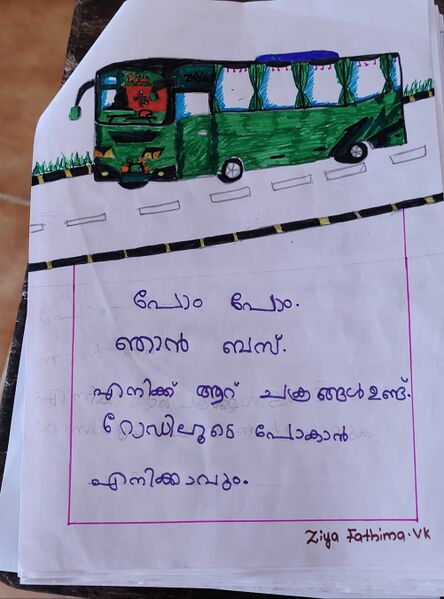 പോം പോം.
ഞാൻ ബസ്.
എനിക്ക് ആറ് ചക്രങ്ങൾ ഉണ്ട്.
റോഡിലൂടെ പോകാൻ
എനിക്കാവും.
Ziya Fathima.VK